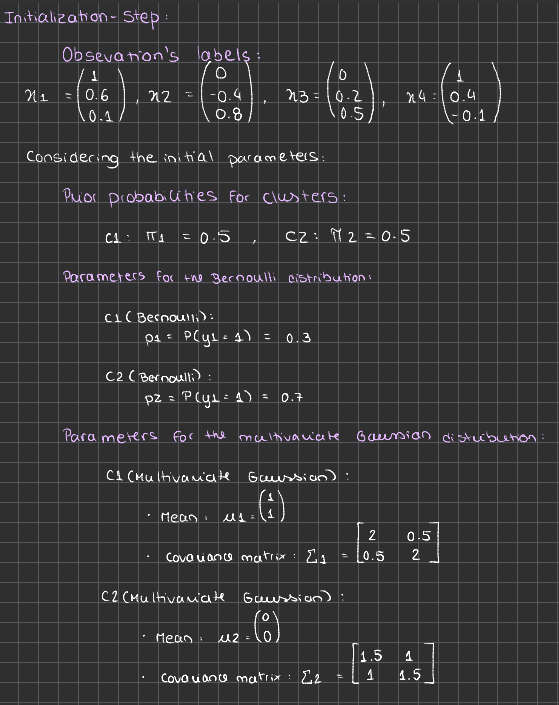 Initialization-Step:
Obsevation's labels:
x1 = (1 0.6 0.1), x2 = (0 -0.4 0.8), x3 = (0 0.2 0.5), x4 = (1 0.4 -0.1)
Considering the initial parameters:
Prior probabilities for clusters:
C1: π1 = 0.5 , C2: π2 = 0.5
Parameters for the Bernoulli distribution:
C1 (Bernoulli):
p1 = P(y1 = 1) = 0.3
C2 (Bernoulli):
p2 = P(y1 = 1) = 0.7
Parameters for the multivariate Gaussian distribution:
C1 (Multivariate Gaussian):
· Mean: μ1 = (1 1)
· Covariance matrix: Σ1 = [2 0.5 0.5 2]
C2 (Multivariate Gaussian):
· Mean: μ2 = (0 0)
· Covariance matrix: Σ2 = [1.5 1 1 1.5]